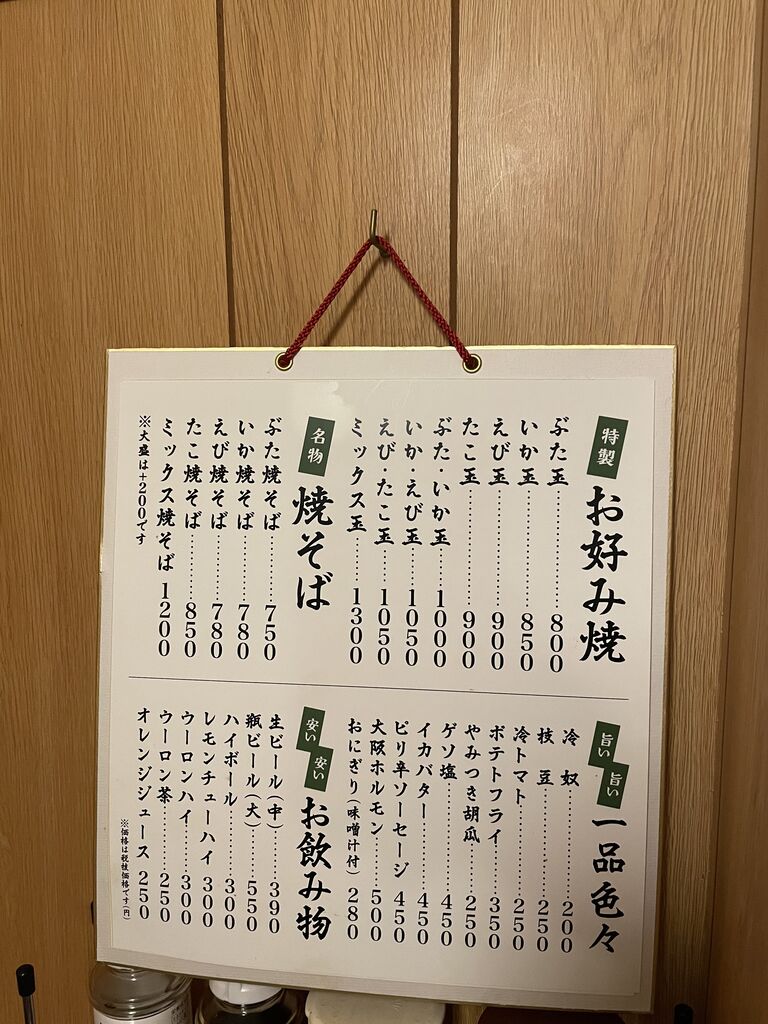 特製
お好み焼
ぶた玉…………800
いか玉…………850
えび玉…………900
たこ玉…………900
ぶた・いか玉……1000
いか・えび玉……1050
えび・たこ玉……1050
ミックス玉……1300
名物
焼そば
ぶた焼そば………750
いか焼そば………780
えび焼そば………780
たこ焼そば………850
ミックス焼そば 1200
※大盛は+200です
旨い
旨い
一品色々
冷奴…………200
枝豆…………250
冷トマト…………250
ポテトフライ……350
やみつき胡瓜……250
ゲソ塩…………450
イカバター………450
ピリ辛ソーセージ 450
大阪ホルモン……500
おにぎり(味噌汁付) 280
安い
安い
お飲み物
生ビール(中)……390
瓶ビール(大)……550
ハイボール………300
レモンチューハイ 300
ウーロンハイ……300
ウーロン茶………250
オレンジジュース 250
※価格は税抜価格です(円)